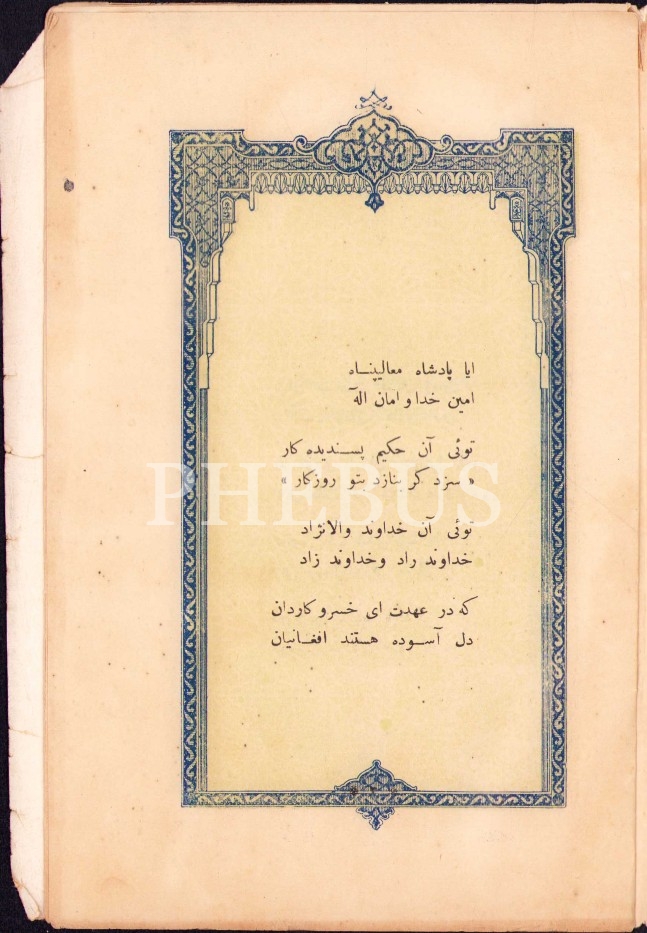 ایا پادشاه معالیپناه
امین خدا و امان الهٓ
توئی آن حکیم پسندیده کار
« سزد کر بنازد بتو روزکار »
توئی آن خداوند والانژاد
خداوند راد وخداوند زاد
که در عهدت ای خسرو کاردان
دل آسوده هستند افغانیان
PHEBUS